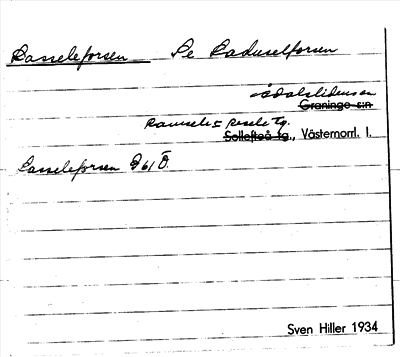 Lasseleforsen Se Laduselforsen
Ådalslidens sn
Graninge s:n
Ramsele o Resele tg.
Sollefteå tg., Västernorrl. l.
Lasseleforsen G 61 Ö
Sven Hiller 1934